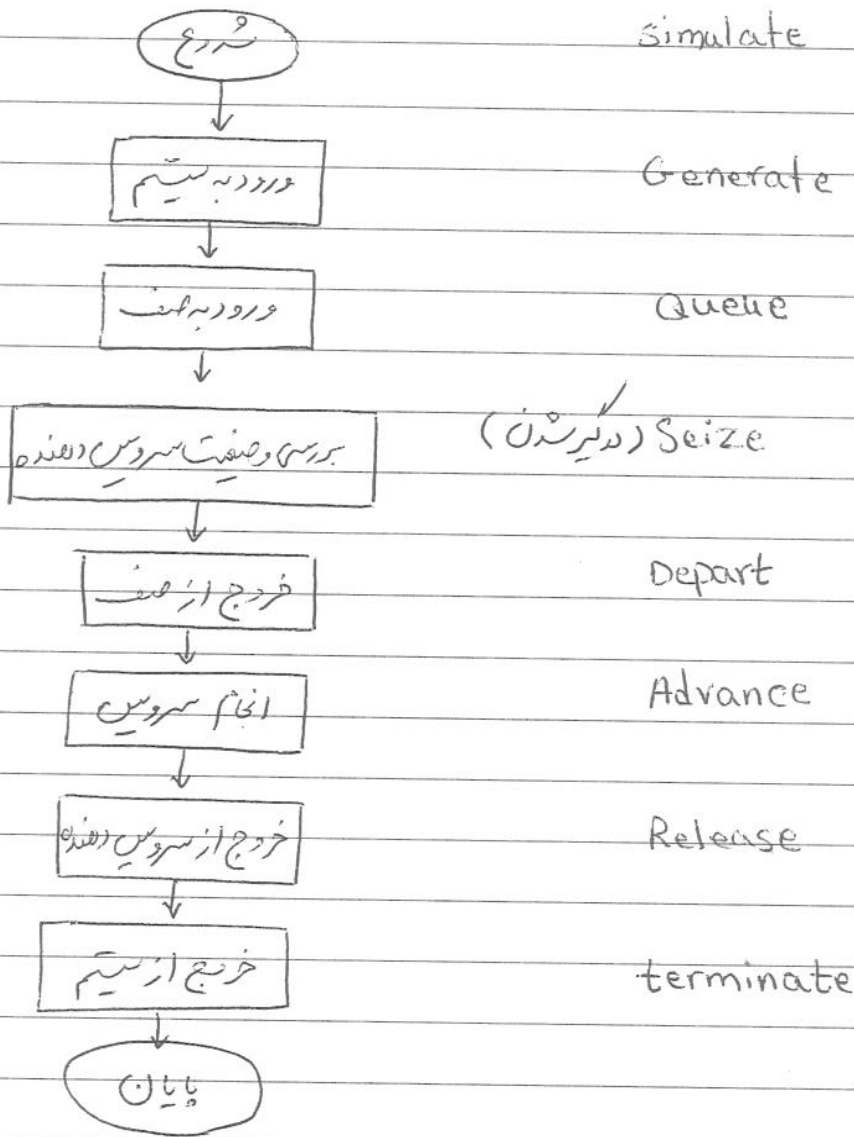 شروع simulate
ورود به سیستم Generate
ورود به صف Queue
بررسی وضعیت سرویس دهنده Seize (درگیر شدن)
خروج از صف Depart
انجام سرویس Advance
خروج از سرویس دهنده Release
خروج از سیستم terminate
پایان